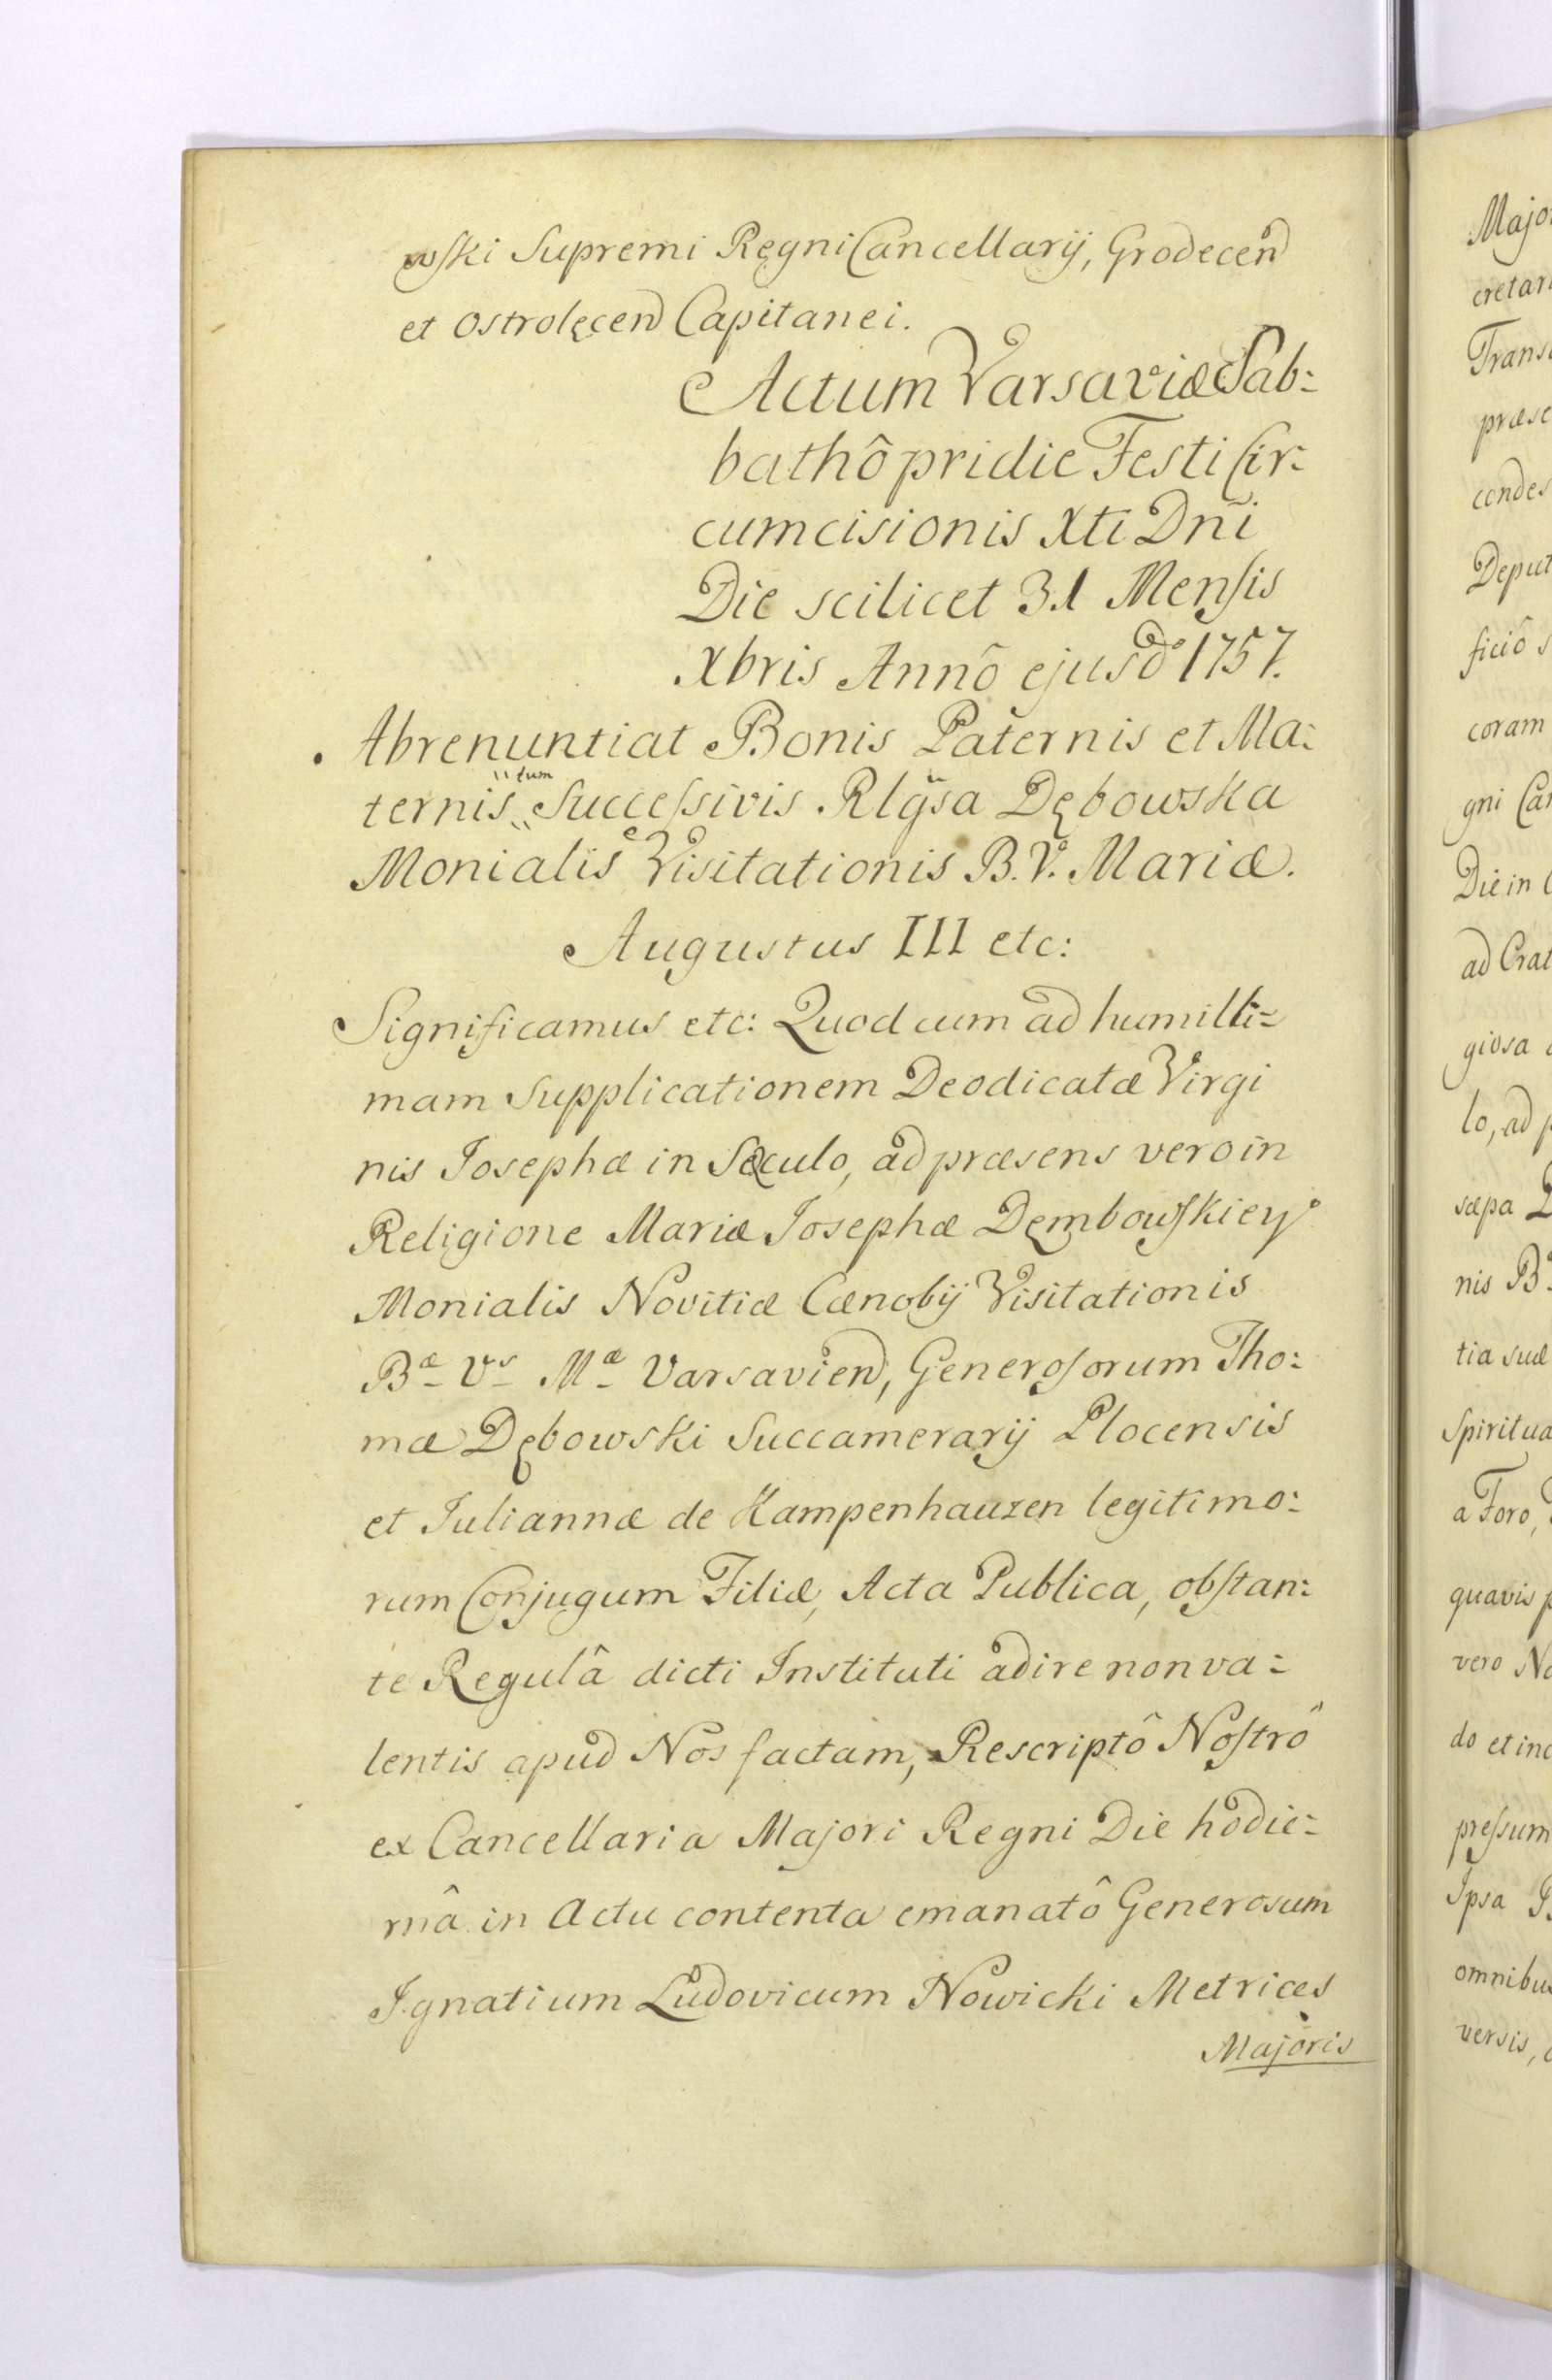 wski Supremi Regni Cancellarij, Grodecen̄
et Ostrolęcen̄ Capitanei.
Actum Varsaviæ Sab:
bathô pridie Festi Cir:
cumcisionis Xti Dnī
Die scilicet 31 Mensis
Xbris Annô ejusd̄ 1757.
Abrenuntiat Bonis Paternis et Ma:
ternis tum Successivis Rlgsa Dębowska
Monialis Visitationis B. V. Mariæ.
Augustus III etc:
Significamus etc: Quod cum ad humilli=
mam Supplicationem Deodicatæ Virgi
nis Josephæ in Sæculo, ad præsens vero in
Religione Mariæ Josephæ Dęmbowskiey
Monialis Novitiæ Cænobij Visitationis
Bæ Vs Mæ Varsavien̄, Generosorum Tho:
mæ Dębowski Succamerarij Plocensis
et Juliannæ de Kampenhauzen legitimo:
rum Conjugum Filiæ, Acta Publica, obstan:
te Regulâ dicti Instituti adire non va=
lentis apud Nos factam, Rescriptô Nostrô
ex Cancellaria Majori Regni Die hodie=
rnâ in Actu contenta emanatô Generosum
Ignatium Ludovicum Nowicki Metrices
Majoris
Major
cretari
Trans
præsc
condes
Deput
ficiô s
coram
gni Can
Die in C
ad Crat
giosa
lo, ad p
sæpa D
nis B
tia suæ
Spiritua
a Foro,
quavis p
vero No
do et inc
pressum
Ipsa
omnibus
versis,